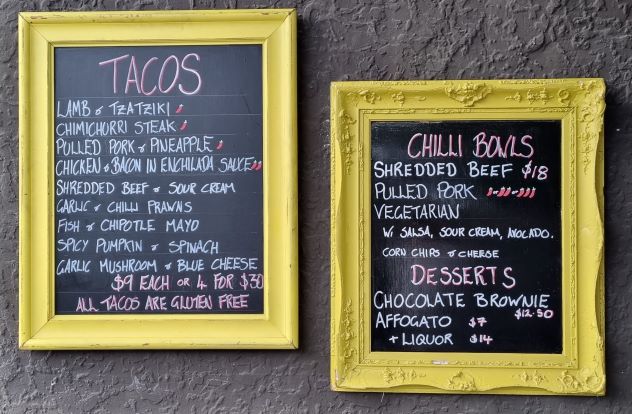 TACOS
LAMB & TZATZIKI
CHIMICHORRI STEAK
PULLED PORK & PINEAPPLE
CHICKEN & BACON IN ENCHILADA SAUCE
SHREDDED BEEF & SOUR CREAM
GARLIC & CHILLI PRAWNS
FISH & CHIPOTLE MAYO
SPICY PUMPKIN & SPINACH
GARLIC MUSHROOM & BLUE CHEESE
$9 EACH OR 4 FOR $30
ALL TACOS ARE GLUTEN FREE
CHILLI BOWLS
SHREDDED BEEF $18
PULLED PORK
VEGETARIAN
W/ SALSA, SOUR CREAM, AVOCADO.
CORN CHIPS & CHEESE
DESSERTS
CHOCOLATE BROWNIE
$12.50
AFFOGATO $7
+ LIQUOR $14